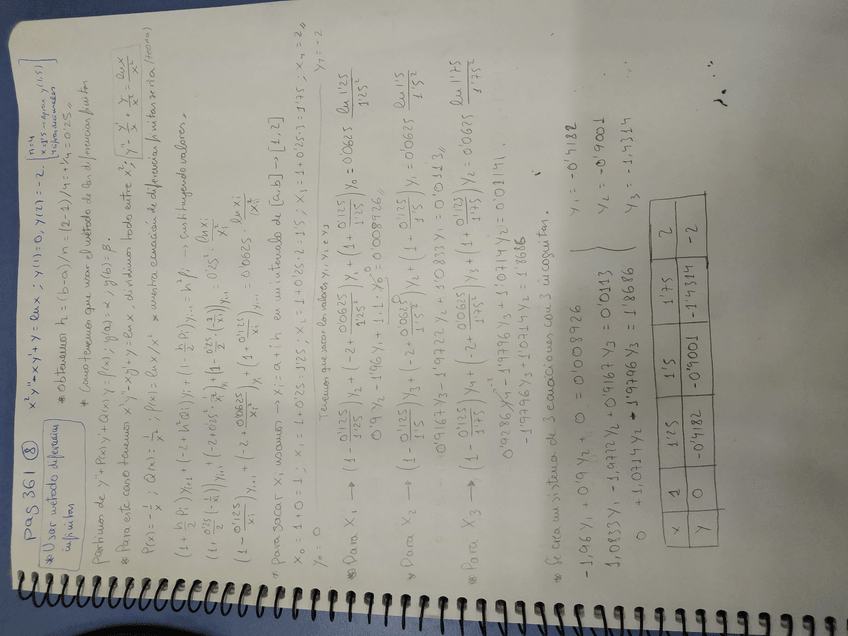 pag 361 ⑧ x²y''-xy'+y=lnx; y(1)=0, y(2)=-2.
n=4
* Usar método diferencias finitas
* Obtenemos h=(b-a)/n=(2-1)/4=1/4=0'25
Partimos de y''+P(x)y'+Q(x)y=f(x); y(a)=α, y(b)=β.
* Para este caso tenemos x²y''-xy'+y=lnx dividimos todo entre x²; y''-y'/x+y/x²=lnx/x²
P(x)=-1/x; Q(x)=1/x²; f(x)=lnx/x² * nuestra ecuación de diferencias finitas sería (teoría)
(1+h/2 Pi)yi+1+(-2+h²Qi)yi+(1-h/2 Pi)yi-1=h²fi → sustituyendo valores.
(1+0'25/2(-1/xi))yi+1+(-2+0'25²·1/xi²)yi+(1-0'25/2(-1/xi))yi-1=0'25²·lnxi/xi²
(1-0'125/xi)yi+1+(-2+0'0625/xi²)yi+(1+0'125/xi)yi-1=0'0625·lnxi/xi²
* Para sacar xi usamos → xi=a+ih en un intervalo de [a,b] → [1,2]
x0=1+0=1; x1=1+0'25=1'25; x2=1+0'25·2=1'5; x3=1+0'25·3=1'75; x4=2
y0=0 Tenemos que sacar los valores y1 y2 e y3 y4=-2
* Para X1 → (1-0'125/1'25)y2+(-2+0'0625/1'25²)y1+(1+0'125/1'25)y0=0'0625 ln1'25/1'25²
0'9y2-1'96y1+1.1·y0=0'008926
* Para X2 → (1-0'125/1'5)y3+(-2+0'0625/1'5²)y2+(1+0'125/1'5)y1=0'0625 ln1'5/1'5²
0'9167y3-1'9722y2+1'0833y1=0'0113
* Para X3 → (1-0'125/1'75)y4+(-2+0'0625/1'75²)y3+(1+0'125/1'75)y2=0'0625 ln1'75/1'75²
0'9286y4-1'9796y3+1'0714y2=0'01141.
-1'9796y3+1'0714y2=1'8686
* Se crea un sistema de 3 ecuaciones con 3 incógnitas.
-1,96y1+0'9y2+0=0'008926 y1=-0'4182
1,0833y1-1,9722y2+0'9167y3=0'0113 y2=-0'9001
0+1,0714y2-1'9796y3=1'8686 y3=-1,4314
x 1 1'25 1'5 1'75 2
y 0 -0'4182 -0'9001 -1'4314 -2